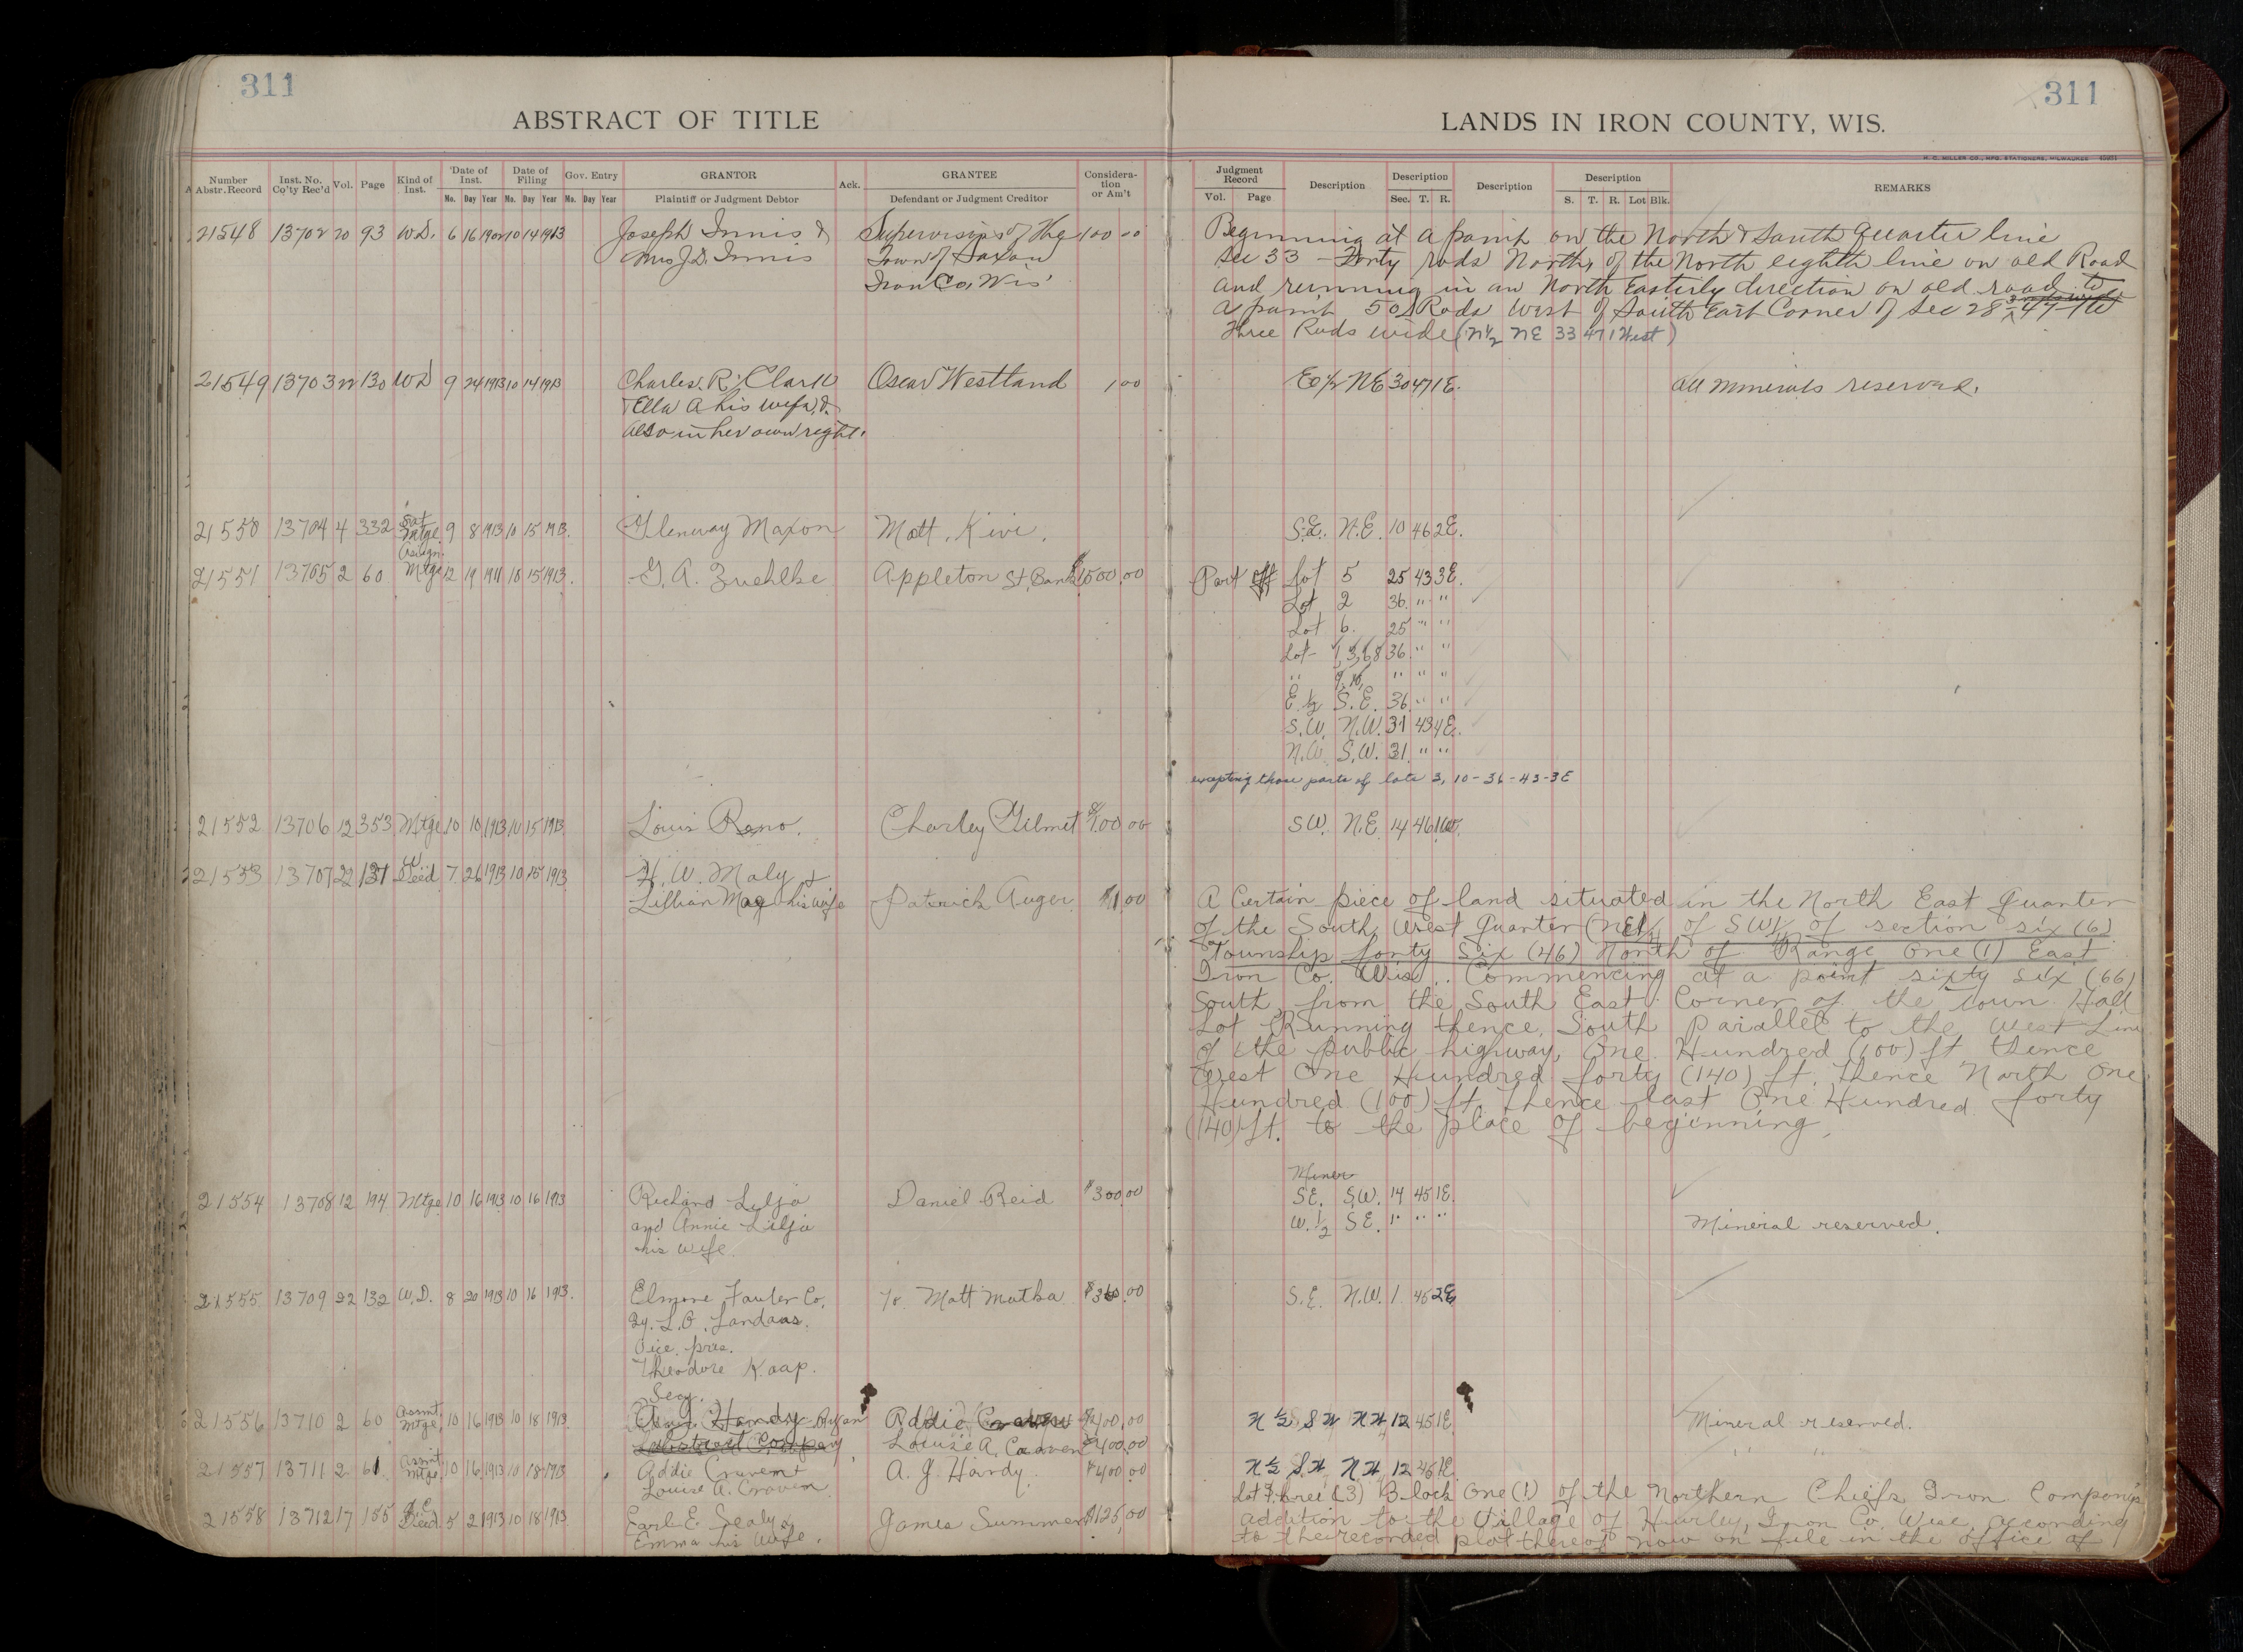 311
311
ABSTRACT OF TITLE
LANDS IN IRON COUNTY, WIS.
H. C. MILLER CO., MFG. STATIONERS, MILWAUKEE
Number Abstr. Record Inst. No. Co'ty Rec'd Vol. Page Kind of Inst. Date of Inst. Date of Filing Gov. Entry GRANTOR Ack. GRANTEE Considera-tion or Am't
Mo. Day Year Mo. Day Year Mo. Day Year Plaintiff or Judgment Debtor Defendant or Judgment Creditor
Judgment Record Description Description Description Description REMARKS
Vol. Page Sec. T. R. S. T. R. Lot Blk.
21548 13702 20 93 W.D. 6 16 1902 10 14 1913 Joseph Innis & Supervisors of the 100 00
Mrs J.D. Innis Town of Saxon
Iron Co, Wis
Beginning at a point on the North & South Quarter line
Sec 33 Forty rods North, of the North eighth line on old Road
and running in an North Easterly direction on old road to
a point 50 Rods West of South East Corner of Sec 28
Three Rods wide (N½ NE 33 47 1 West)
21549 13703 22 130 WD 9 24 1913 10 14 1913 Charles R. Clark Oscar Westland 1 00 E½ NE 30 47 1E. All minerals reserved.
& Ella A his wife, &
also in her own right.
21550 13704 4 332 Sat Mtge 9 8 1913 10 15 1913. Glenway Maxon Matt. Kivi. S.E. N.E. 10 46 2E.
21551 13705 2 60 Assign. Mtge 12 19 1911 10 15 1913. G. A. Zuehlke Appleton St. Bank $1500.00 Part off Lot 5 25 43 3E.
Lot 2 36. " "
Lot 6. 25 " "
Lot- 1, 3, 6, 8 36. " "
" 9, 10, " " "
E ½ S.E. 36. " "
S.W. N.W. 31 43 4E.
N.W. S.W. 31. " "
excepting those parts of lots 3, 10-36-43-3E
21552 13706 12 353 Mtge 10 10 1913 10 15 1913 Louis Reno. Charley Gilmet 00 S.W. N.E. 14 46 1W.
21553 13707 22 131 W Deed 7 26 1913 10 15 1913 H. W. Maly &
Lillian his wife Patrick Auger $1.00
A Certain piece of land situated in the North East Quarter
of the South West Quarter (NE¼ of SW¼ of section six (6)
Township forty six (46) North of Range One (1) East
Iron Co. Wis.. Commencing at a point sixty six (66)
South, from the South East Corner of the Town Hall
Lot Running thence, South parallel to the West Line
of the public highway, One Hundred (100) ft thence
West One Hundred forty (140) ft. thence North One
Hundred (100) ft. thence East One Hundred forty
(140) ft. to the place of beginning.
21554 13708 12 194 Mtge 10 16 1913 10 16 1913 Richard Lilja Daniel Reid $300.00 SE. S.W. 14 45 1E.
and Annie Lilja W. ½ SE. " " " Mineral reserved.
his wife.
21555 13709 22 132 W.D. 8 20 1913 10 16 1913. Elmore Co. To Matt Mutka $360.00 S.E. N.W. 1. 45 2E
By. L.O. Landaas.
Vice. pres.
Theodore Kaap.
Secy.
21556 13710 2 60 Assmt. Mtge. 10 16 1913 10 18 1913 Addie Craven $400.00 N ½ S W N W 12 45 1E Mineral reserved.
Louise A. Craven $400.00 " "
21557 13711 2 61 Assmt. Mtge 10 16 1913 10 18 1913 Addie Craven & A. J. Hardy. $400.00 N ½ S.W N.W 12 45 1E.
Louise A. Craven.
21558 13712 17 155 Q C Deed 5 2 1913 10 18 1913 Earl E. Sealy & James Summer $125.00
Emma his wife.
Lot Three (3) Block One (1) of the Northern Chiefs Iron Companys
addition to the Village of Hurley, Iron Co. Wisc. according
to the recorded plat thereof now on file in the office of